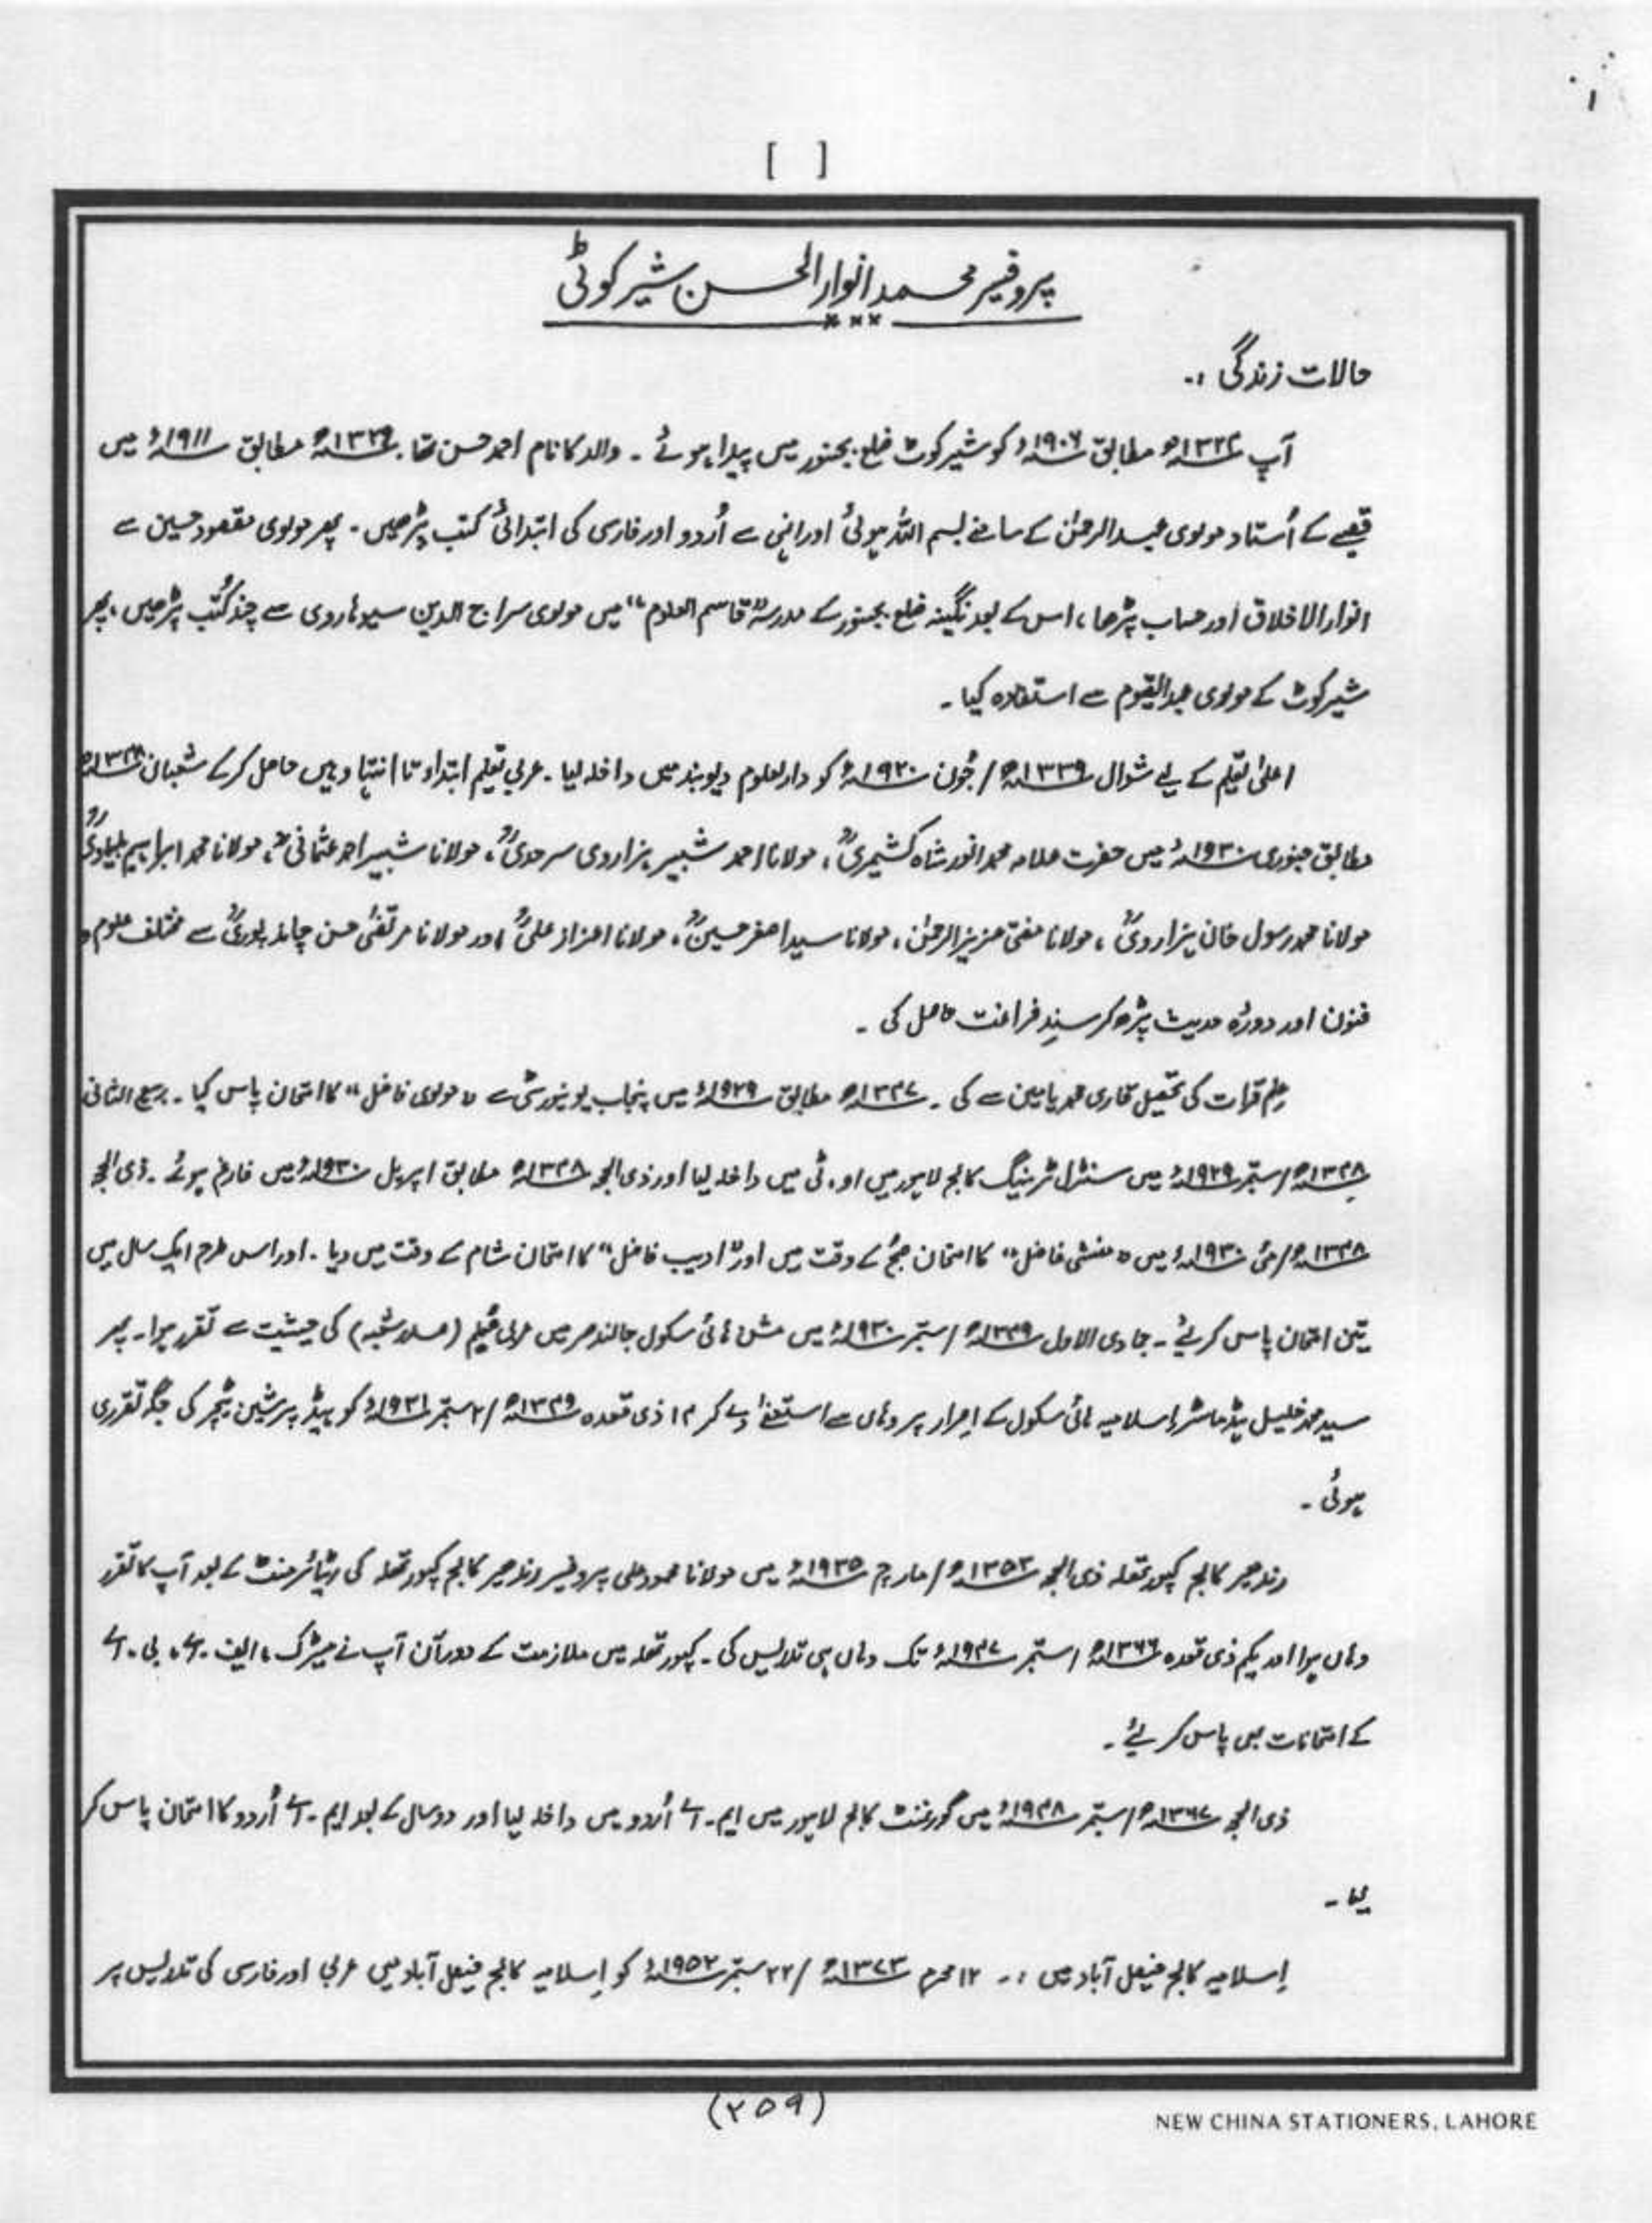 [ ]
پروفیسر محمد انوار الحسن شیرکوٹی
حالات زندگی :۔
آپ ۱۳۲۴ھ مطابق ۱۹۰۶ء کو شیرکوٹ ضلع بجنور میں پیدا ہوئے ۔ والد کا نام احمد حسن تھا ۔ ۱۳۲۹ھ مطابق ۱۹۱۱ء میں
قصبے کے اُستاد مولوی عبدالرحمٰن کے سامنے بسم اللہ ہوئی اور انہی سے اُردو اور فارسی کی ابتدائی کتب پڑھیں ۔ پھر مولوی مقصود حسین سے
انوار الاخلاق اور حساب پڑھا ، اس کے بعد نگینہ ضلع بجنور کے مدرسہ "قاسم العلوم" میں مولوی سراج الدین سیوہاروی سے چند کُتب پڑھیں ، پھر
شیرکوٹ کے مولوی عبدالقیوم سے استفادہ کیا ۔
اعلیٰ تعلیم کے لیے شوال ۱۳۳۹ھ / جُون ۱۹۲۰ء کو دارلعلوم دیوبند میں داخلہ لیا ۔ عربی تعلیم ابتداء تا انتہا وہیں حاصل کرکے شعبان ۱۳۴۸ھ
مطابق جنوری ۱۹۳۰ء میں حضرت علامہ محمد انور شاہ کشمیریؒ ، مولانا احمد شبیر ہزاروی سرحدیؒ ، مولانا شبیر احمد عثمانیؒ ، مولانا محمد ابراہیم بلیاویؒ
مولانا محمد رسول خان ہزارویؒ ، مولانا مفتی عزیز الرحمٰن ، مولانا سید اصغر حسینؒ ، مولانا اعزاز علیؒ اور مولانا مرتضٰی حسن چاند پوریؒ سے مختلف علوم و
فنون اور دورۂ حدیث پڑھ کر سندِ فراغت حاصل کی ۔
علم قرات کی تحصیل قاری محمد یامین سے کی ۔ ۱۳۴۷ھ مطابق ۱۹۲۹ء میں پنجاب یونیورسٹی سے "مولوی فاضل" کا امتحان پاس کیا ۔ ربیع الثانی
۱۳۴۸ھ / ستمبر ۱۹۲۹ء میں سنٹرل ٹریننگ کالج لاہور میں او ۔ ٹی میں داخلہ لیا اور ذی الحجہ ۱۳۴۸ھ مطابق اپریل ۱۹۳۰ء میں فارغ ہوئے ۔ ذی الحجہ
۱۳۴۸ھ / مئی ۱۹۳۰ء میں "منشی فاضل" کا امتحان صبح کے وقت میں اور "ادیب فاضل" کا امتحان شام کے وقت میں دیا ۔ اور اس طرح ایک سال میں
تین امتحان پاس کر لیے ۔ جمادی الاول ۱۳۴۹ھ / ستمبر ۱۹۳۰ء میں مشن ہائی سکول جالندھر میں عربی معلم (صدر شعبہ) کی حیثیت سے تقرر ہوا ۔ پھر
سید محمد خلیل ہیڈ ماسٹر اسلامیہ ہائی سکول کے اصرار پر وہاں سے استعفٰے دے کر ۱۴ ذی قعدہ ۱۳۴۹ھ / ۲ ستمبر ۱۹۳۱ء کو ہیڈ پرشین ٹیچر کی جگہ تقرری
ہوئی ۔
رندھیر کالج کپورتھلہ ذی الحجہ ۱۳۵۳ھ / مارچ ۱۹۳۵ء میں مولانا محمود علی پروفیسر رندھیر کالج کپورتھلہ کی ریٹائرمنٹ کے بعد آپ کا تقرر
وہاں ہوا اور یکم ذی قعدہ ۱۳۶۶ھ / ستمبر ۱۹۴۷ء تک وہاں ہی تدریس کی ۔ کپورتھلہ میں ملازمت کے دوران آپ نے میٹرک ، ایف ۔ اے ، بی ۔ اے
کے امتحانات بھی پاس کر لئے ۔
ذی الحجہ ۱۳۶۷ھ / ستمبر ۱۹۴۸ء میں گورنمنٹ کالج لاہور میں ایم ۔ اے اُردو میں داخلہ لیا اور دو سال کے بعد ایم ۔ اے اُردو کا امتحان پاس کر
لیا ۔
اِسلامیہ کالج فیصل آباد میں :۔ ۱۲ محرم ۱۳۷۳ھ / ۲۲ ستمبر ۱۹۵۲ء کو اِسلامیہ کالج فیصل آباد میں عربی اور فارسی کی تدریس پر
(۲۵۹)
NEW CHINA STATIONERS, LAHORE